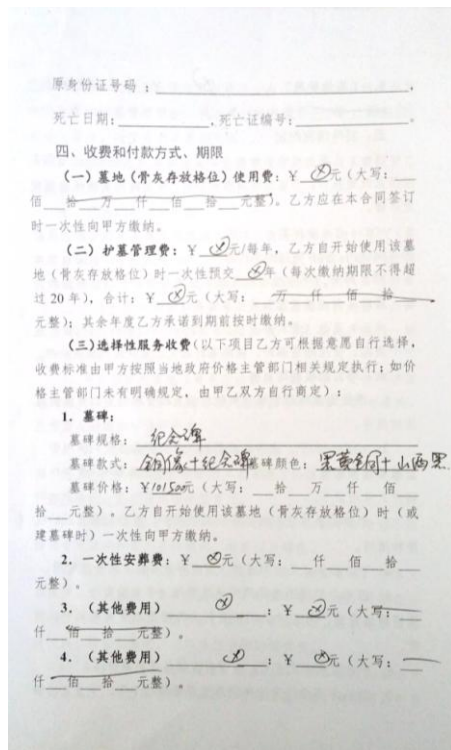 原身份证号码：
死亡日期：，死亡证编号：。
四、收费和付款方式、期限
（一）墓地（骨灰存放格位）使用费：￥元（大写：
佰 拾 万 仟 佰 拾 元整）。乙方应在本合同签订
时一次性向甲方缴纳。
（二）护墓管理费：￥元/每年，乙方自开始使用该墓
地（骨灰存放格位）时一次性预交 年（每次缴纳期限不得超
过 20 年），合计：￥元（大写： 万 仟 佰 拾
元整）；其余年度乙方承诺到期前按时缴纳。
（三）选择性服务收费（以下项目乙方可根据意愿自行选择，
收费标准由甲方按照当地政府价格主管部门相关规定执行；如价
格主管部门未有明确规定，由甲乙双方自行商定）：
1. 墓碑：
墓碑规格：纪念碑
墓碑款式：铜像+纪念碑 墓碑颜色：黑黄铜+山西黑
墓碑价格：￥101500元（大写： 拾 万 仟 佰
拾 元整）。乙方自开始使用该墓地（骨灰存放格位）时（或
建墓碑时）一次性向甲方缴纳。
2. 一次性安葬费：￥元（大写： 仟 佰 拾
元整）。
3. （其他费用）：￥元（大写：
仟 佰 拾 元整）。
4. （其他费用）：￥元（大写：
仟 佰 拾 元整）。